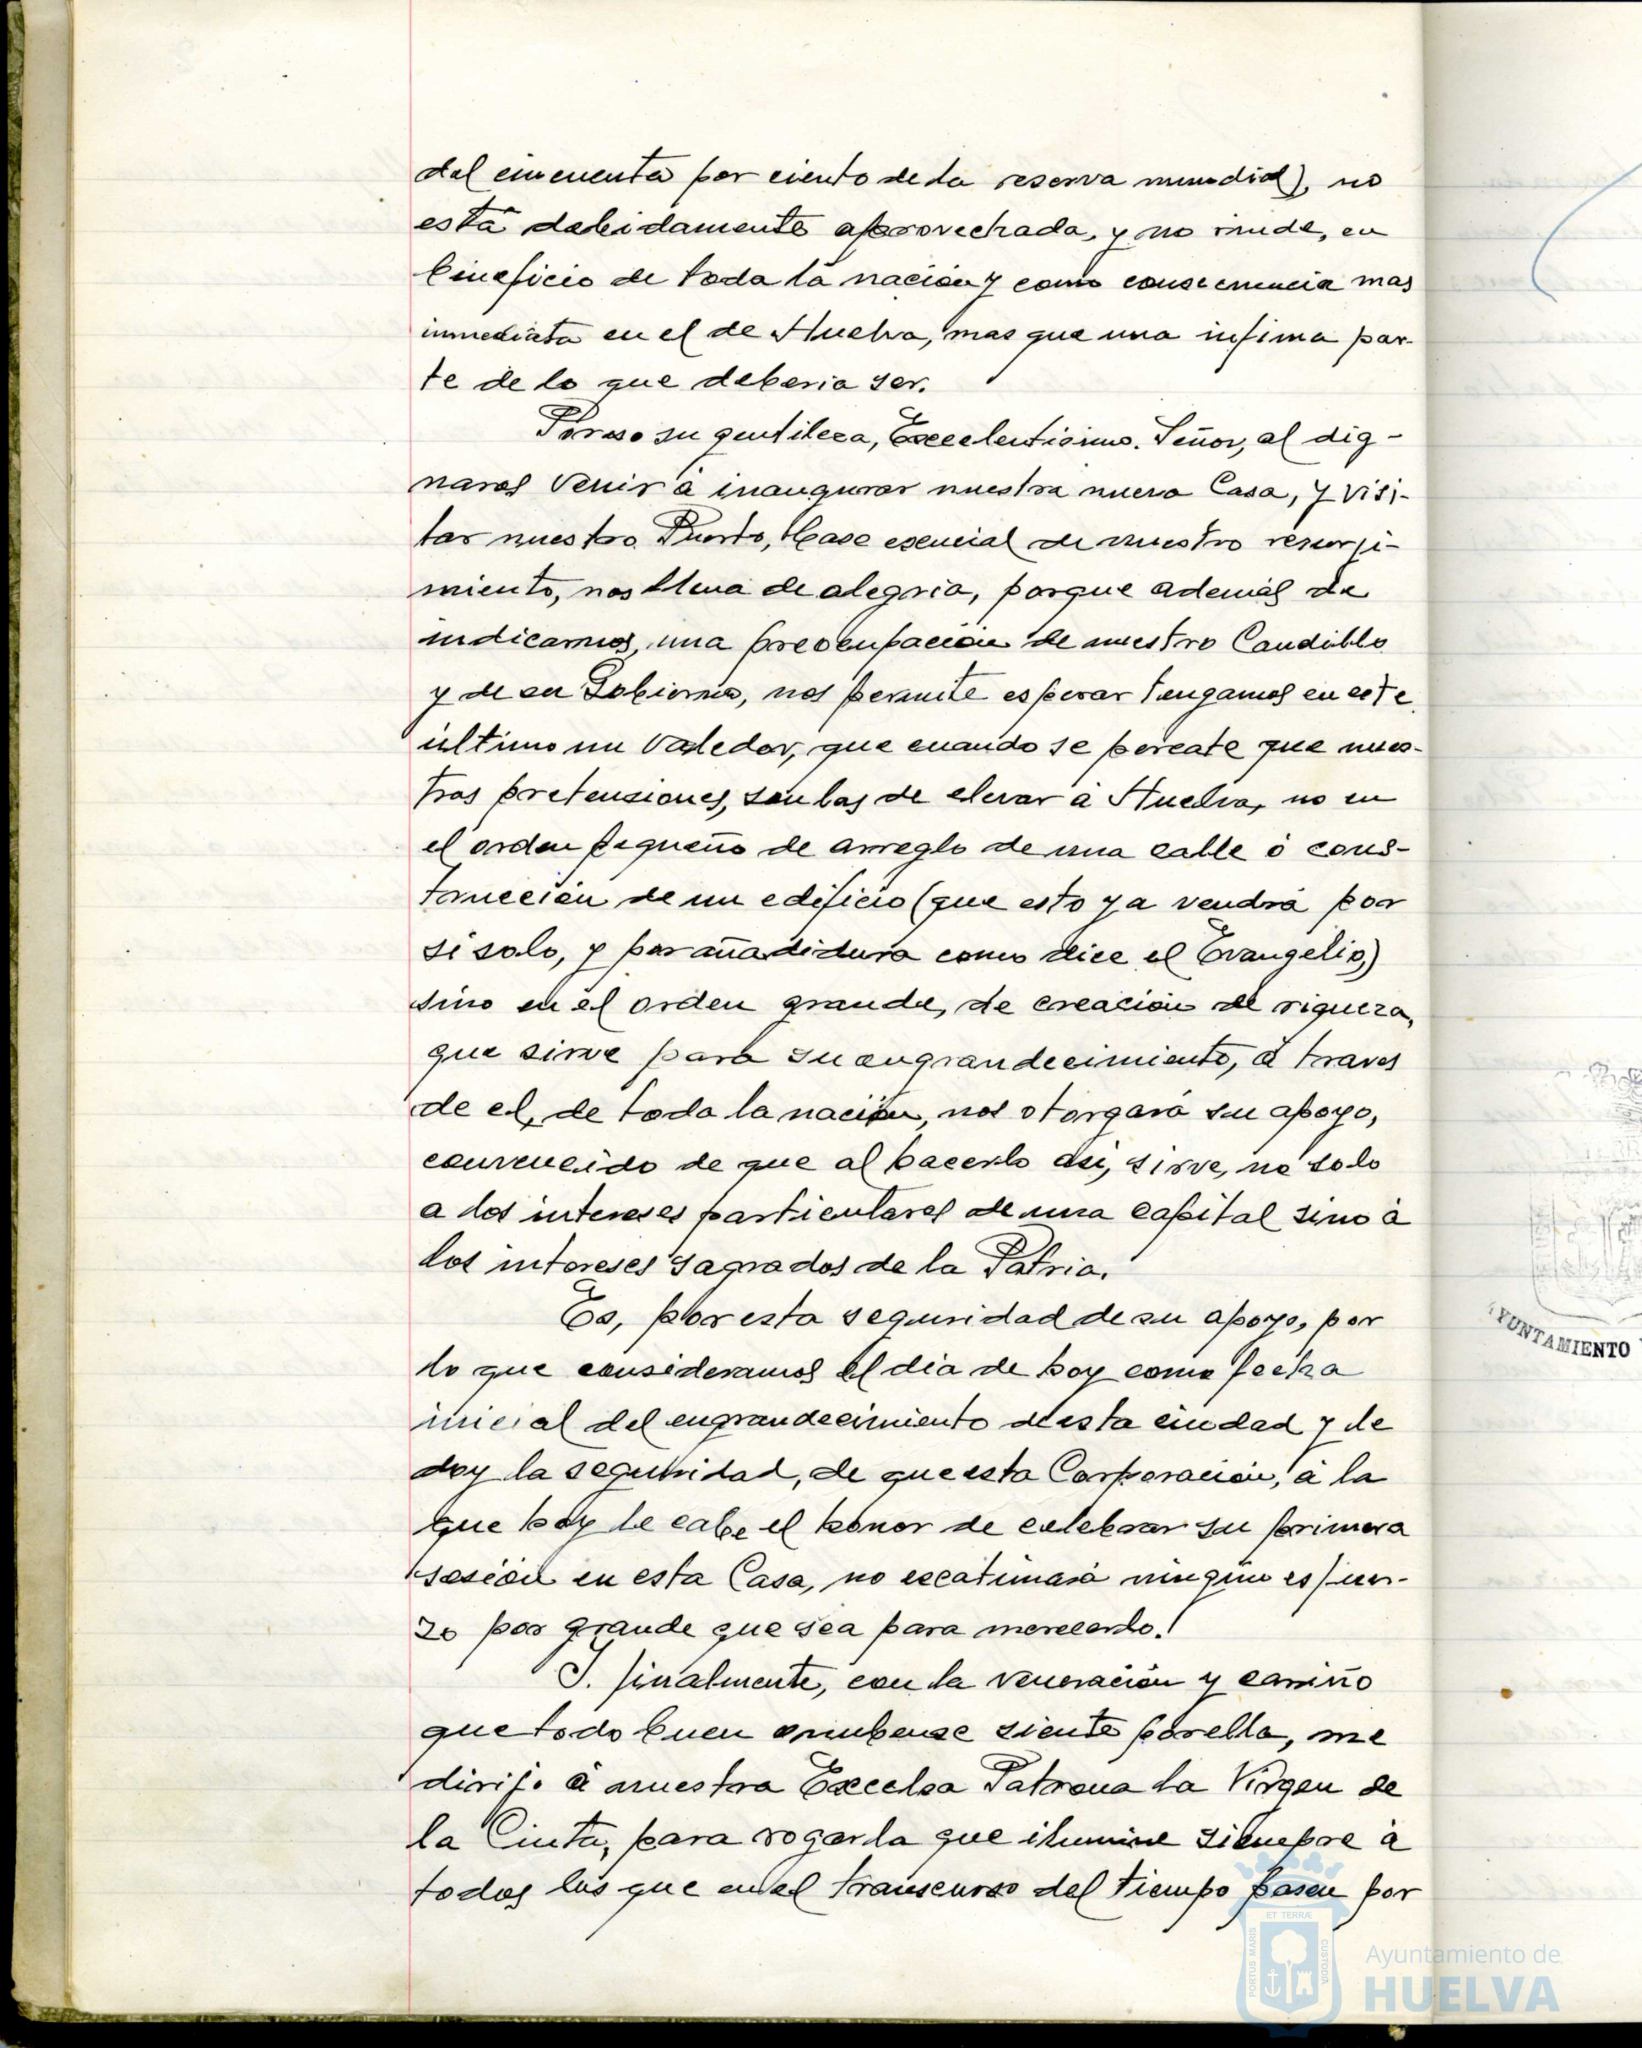 del cincuenta por ciento de la reserva mundial), no
está debidamente aprovechada, y no rinde, en
beneficio de toda la nación y como consecuencia mas
inmediata en el de Huelva, mas que una infima par-
te de lo que deberia ser.
Por eso su gentileza, Excelentisimo. Señor, al dig-
naros venir á inaugurar nuestra nueva Casa, y visi-
tar nuestro Puerto, base esencial de nuestro resurji-
miento, nos llena de alegria, porque además de
indicarnos, una preocupación de nuestro Caudillo
y de su Gobierno, nos permite esperar tengamos en este
último un valedor, que cuando se percate que nues-
tras pretensiones, son las de elevar á Huelva, no en
el orden pequeño de arreglo de una calle ó cons-
trucción de un edificio (que esto ya vendrá por
si solo, y por añadidura como dice el Evangelio,)
sino en el orden grande, de creación de riqueza,
que sirve para su engrandecimiento, á traves
de el, de toda la nación, nos otorgará su apoyo,
convencido de que al hacerlo asi, sirve, no solo
a los intereses particulares de una capital sino á
los intereses sagrados de la Patria.
Es, por esta seguridad de su apoyo, por
lo que consideramos el dia de hoy como fecha
inicial del engrandecimiento de esta ciudad y le
doy la seguridad, de que esta Corporación, á la
que hoy le cabe el honor de celebrar su primera
sesión en esta Casa, no escatimará ningún esfuer-
zo por grande que sea para merecerlo.
Y. finalmente, con la veneración y cariño
que todo buen onubense siente por ella, me
dirijo á nuestra Excelsa Patrona la Virgen de
la Cinta, para rogarla que ilumine siempre á
todos los que en el transcurso del tiempo pasen por
AYUNTAMIENTO
ET TERRÆ
PORTUS MARIS
CUSTODIA
Ayuntamiento de
HUELVA